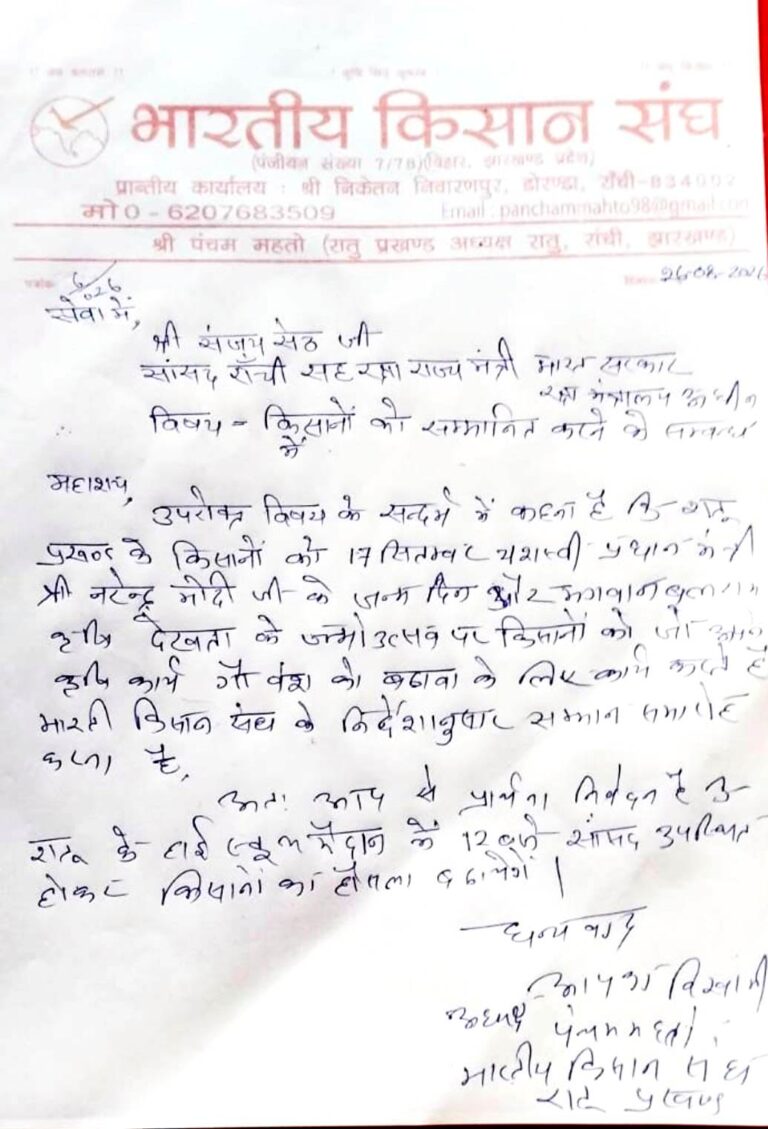 भारतीय किसान संघ
(पंजीयन संख्या 7/78)(बिहार, झारखण्ड प्रदेश)
प्रान्तीय कार्यालय : श्री निकेतन निवारणपुर, डोरण्डा, राँची-834002
मो0 - 6207683509 Email : panchammahto98@gmail.com
श्री पंचम महतो (रातु प्रखण्ड अध्यक्ष रातु, रांची, झारखण्ड)
पत्रांक 6/026 दिनांक
सेवा में,
श्री संजय सेठ जी
सांसद राँची सह रक्षा राज्य मंत्री भारत सरकार
रक्षा मंत्रालय अधीन
विषय - किसानों को सम्मानित करने के सम्बन्ध
में
महाशय,
उपरोक्त विषय के सन्दर्भ में कहना है कि रातू
प्रखण्ड के किसानों को 17 सितम्बर यशस्वी प्रधान मंत्री
श्री नरेन्द्र मोदी जी के जन्म दिन और भगवान बलराम
कृषि देवता के जन्मोउत्सव पर किसानों को जो
कृषि कार्य गौ वंश को बढावा के लिए कार्य करते है
भारती किसान संघ के निर्देशानुसार सम्मान समारोह
करना है,
अतः आप से प्रार्थना निवेदन है कि
रातू के हाई स्कूल मैदान में 12 बजे सांसद उपस्थित
होकर किसानों का हौसला बढायेगें।
धन्यवाद
आपका विश्वासी
अध्यक्ष पंचम महतो
भारतीय किसान संघ
रातू प्रखण्ड